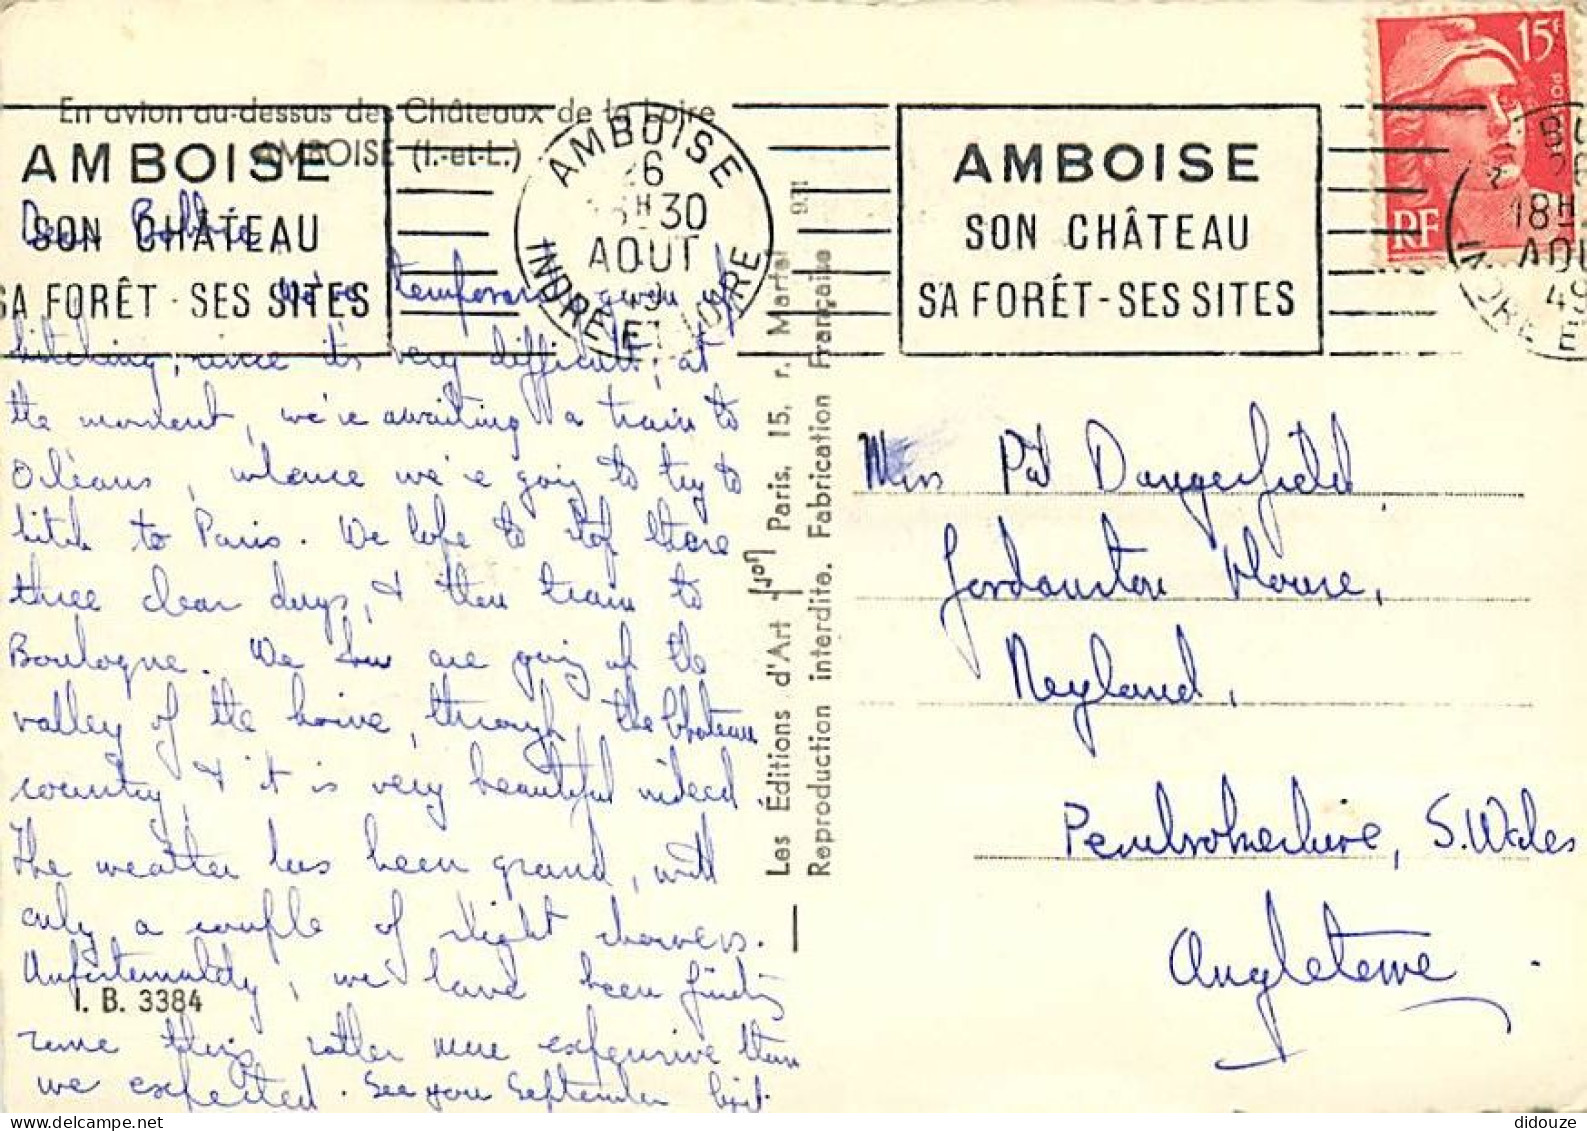 En avion au-dessus des Châteaux de la Loire
AMBOISE (I.-et-L.)
AMBOISE
SON CHÂTEAU
SA FORÊT - SES SITES
AMBOISE
26
30
AOUT
49
INDRE ET LOIRE
AMBOISE
SON CHÂTEAU
SA FORÊT - SES SITES
15F
RF
18H
AOU
49
INDRE E
Dear
We've temporarily given up
hitching, since it's very difficult; at
the moment, we're awaiting a train to
Orléans, whence we're going to try to
hitch to Paris. We hope to stop there
three clear days, & then train to
Boulogne. We are going up the
valley of the Loire, through the Chateau
country, & it is very beautiful indeed.
The weather has been grand, with
only a couple of slight showers.
Unfortunately, we have been finding
some things rather more expensive than
we expected. See you September 1st.
I. B. 3384
Les Éditions d'Art Yvon Paris, 15, r. Martel
Reproduction interdite. Fabrication Française
931
Miss Pat Dangerfield,
Jordanston House,
Neyland,
Pembrokeshire, S. Wales
Angleterre.
didouze